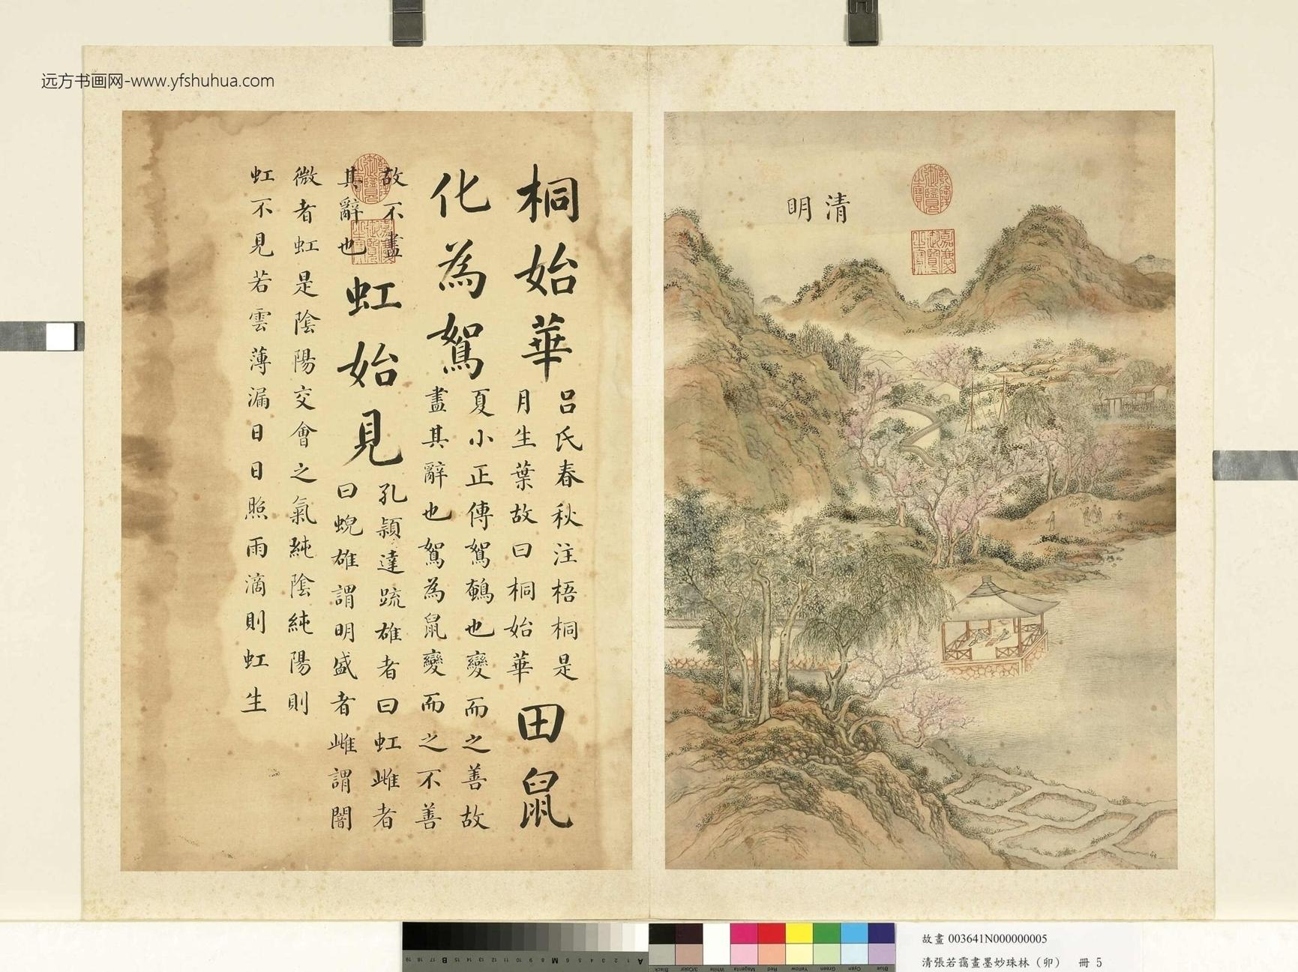 远方书画网-www.yfshuhua.com
清明
乾隆御覽之寶
嘉慶御覽之寶
桐始華
呂氏春秋注梧桐是
月生葉故曰桐始華
田鼠
化為鴽
夏小正傳鴽鵪也變而之善故
盡其辭也鴽為鼠變而之不善
故不盡
其辭也
虹始見
孔穎達疏雄者曰虹雌者
曰蜺雄謂明盛者雌謂闇
微者虹是陰陽交會之氣純陰純陽則
虹不見若雲薄漏日日照雨滴則虹生
故畫 003641N000000005
清張若靄畫墨妙珠林（卯） 冊 5